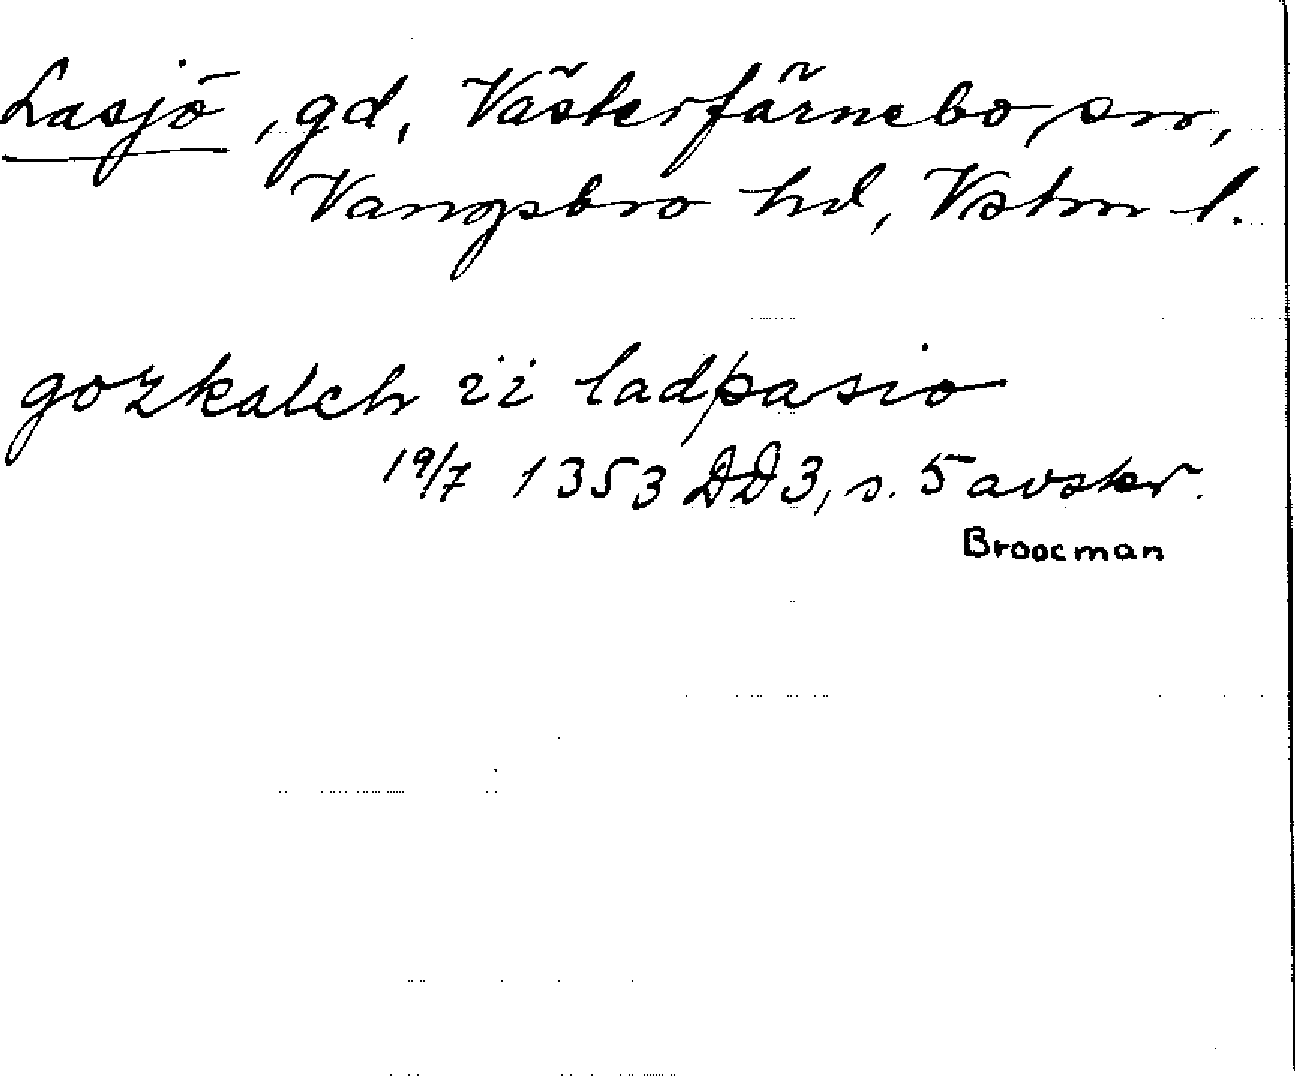 Lasjö, gd, Västerfärnebo sn,
Vangsbro hd, Vstm l.
gozkalch ii ladpasio
19/7 1353 DD3, s. 5 avskr.
Broocman